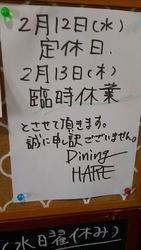 2月12日(水)
定休日.
2月13日(木)
臨時休業
とさせて頂きます。
誠に申し訳ございません。
Dining
HARE
(水曜休み)